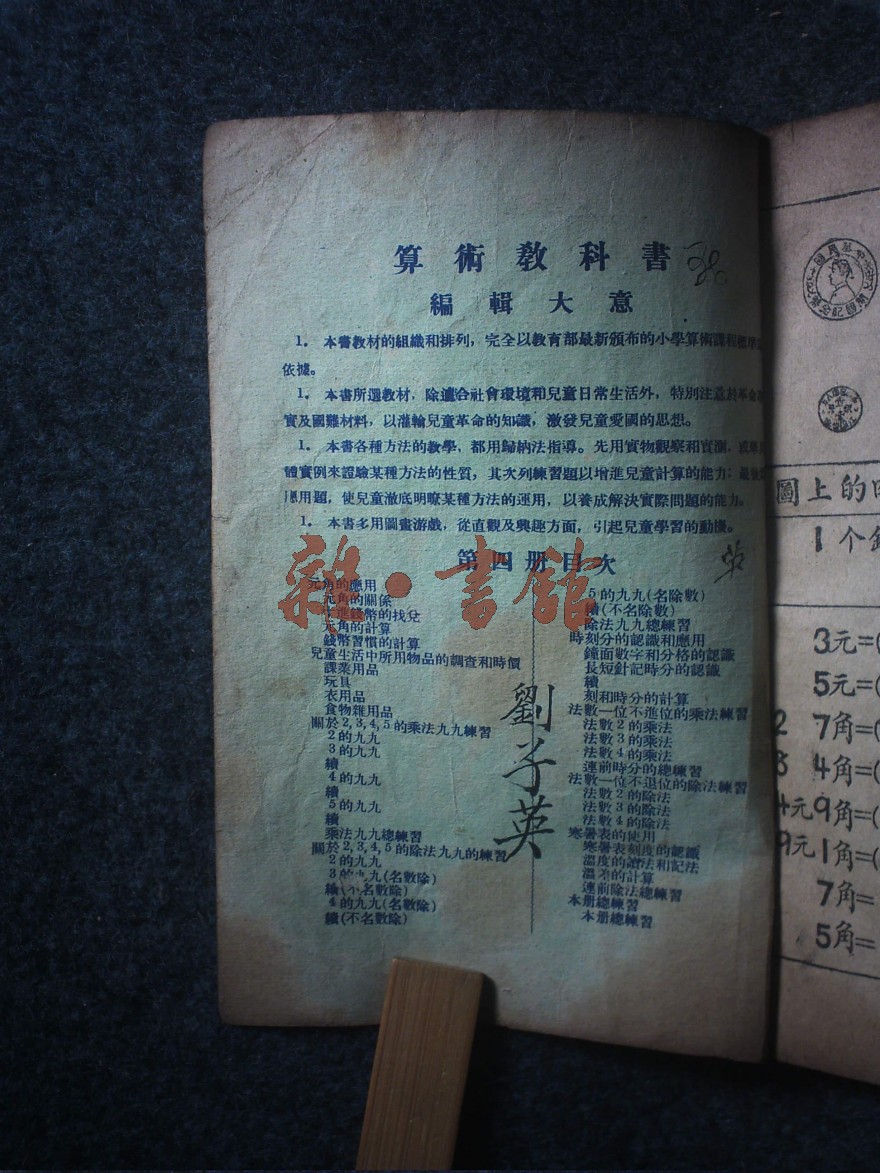 算術教科書
編輯大意
1. 本書教材的組織和排列，完全以教育部最新頒布的小學算術課程標準
依據。
1. 本書所選教材，除適合社會環境和兒童日常生活外，特別注意於革命
實及國難材料，以灌輸兒童革命的知識，激發兒童愛國的思想。
1. 本書各種方法的教學，都用歸納法指導。先用實物觀察和實測，或
體實例來證驗某種方法的性質，其次列練習題以增進兒童計算的能力；最後
應用題，使兒童澈底明瞭某種方法的運用，以養成解決實際問題的能力。
1. 本書多用圖畫游戲，從直觀及興趣方面，引起兒童學習的動機。
第四册目次
元角的應用
元角的關係
錢幣的找兌
元角的計算
錢幣習慣的計算
兒童生活中所用物品的調查和時價
課業用品
玩具
衣用品
食物雜用品
關於2,3,4,5的乘法九九練習
2的九九
3的九九
續
4的九九
續
5的九九
續
乘法九九總練習
關於2,3,4,5的除法九九的練習
2的九九
3的九九(名數除)
續(不名數除)
4的九九(名數除)
續(不名數除)
5的九九(名除數)
續(不名除數)
除法九九總練習
時刻分的認識和應用
鐘面數字和分格的認識
長短針記時分的認識
續
刻和時分的計算
法數一位不進位的乘法練習
法數2的乘法
法數3的乘法
法數4的乘法
連前時分的總練習
法數一位不退位的除法練習
法數2的除法
法數3的除法
法數4的除法
寒暑表的使用
寒暑表刻度的認識
溫度的讀法和記法
溫差的計算
連前除法總練習
本册總練習
本册總練習
劉子英
雜·書館
圖上的
1个
3元=(
5元=(
2 7角=(
3 4角=(
4元9角=(
9元1角=(
7角=
5角=